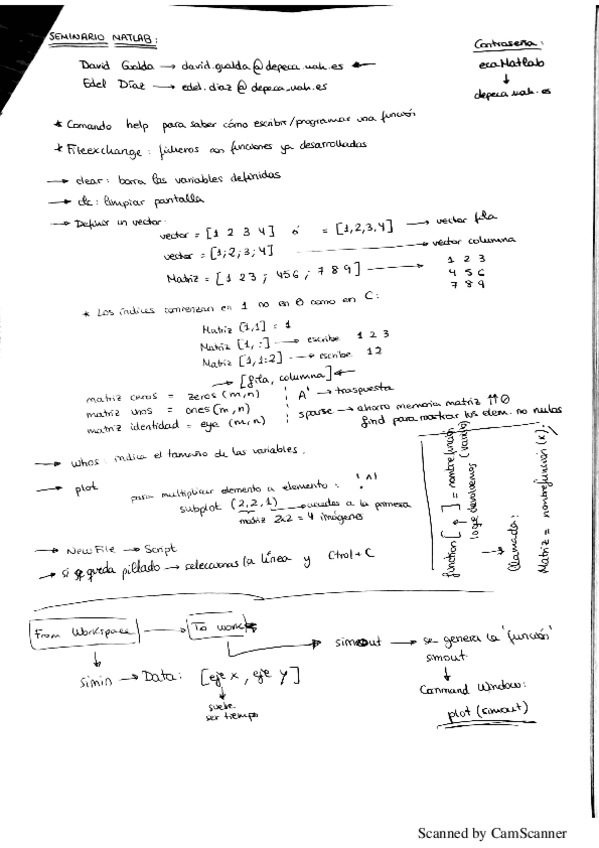 SEMINARIO MATLAB:
Contraseña:
David Gualda → david.gualda@depeca.uah.es ←
ecaMatlab
Edel Díaz → edel.diaz@depeca.uah.es
↓
depeca.uah.es
* Comando help para saber cómo escribir/programar una función
* Fileexchange: ficheros con funciones ya desarrolladas
→ clear: borra las variables definidas
→ clc: limpiar pantalla
→ Definir un vector:
vector = [1 2 3 4] ó = [1,2,3,4] → vector fila
vector = [1;2;3;4] → vector columna
Matriz = [1 2 3 ; 4 5 6 ; 7 8 9] →
1 2 3
4 5 6
7 8 9
* Los índices comienzan en 1 no en 0 como en C:
Matriz [1,1] = 1
Matriz [1, :] → escribe 1 2 3
Matriz [1,1:2] → escribe 1 2
→ [fila, columna] ←
matriz ceros = zeros (m,n)
matriz unos = ones (m,n)
matriz identidad = eye (m,n)
A' → traspuesta
sparse → ahorro memoria matriz ↑↑0
find para marcar los elem. no nulos
→ whos: indica el tamaño de las variables.
→ plot
para multiplicar elemento a elemento: '.*'
subplot (2,2,1) → accedes a la primera
matriz 2x2 = 4 imágenes
function [ ] = nombrefunción
lo que devolvemos (variable)
→ Llamada:
Matriz = nombrefunción (x).
→ New File → Script
→ si se queda pillado → seleccionas la línea y Ctrl + C
From Workspace → To works
↓
simin → Data: [eje x, eje y]
↓
suele
ser tiempo
→ simout → se genera la 'función'
simout
↓
Command Window:
plot (simout)
Scanned by CamScanner